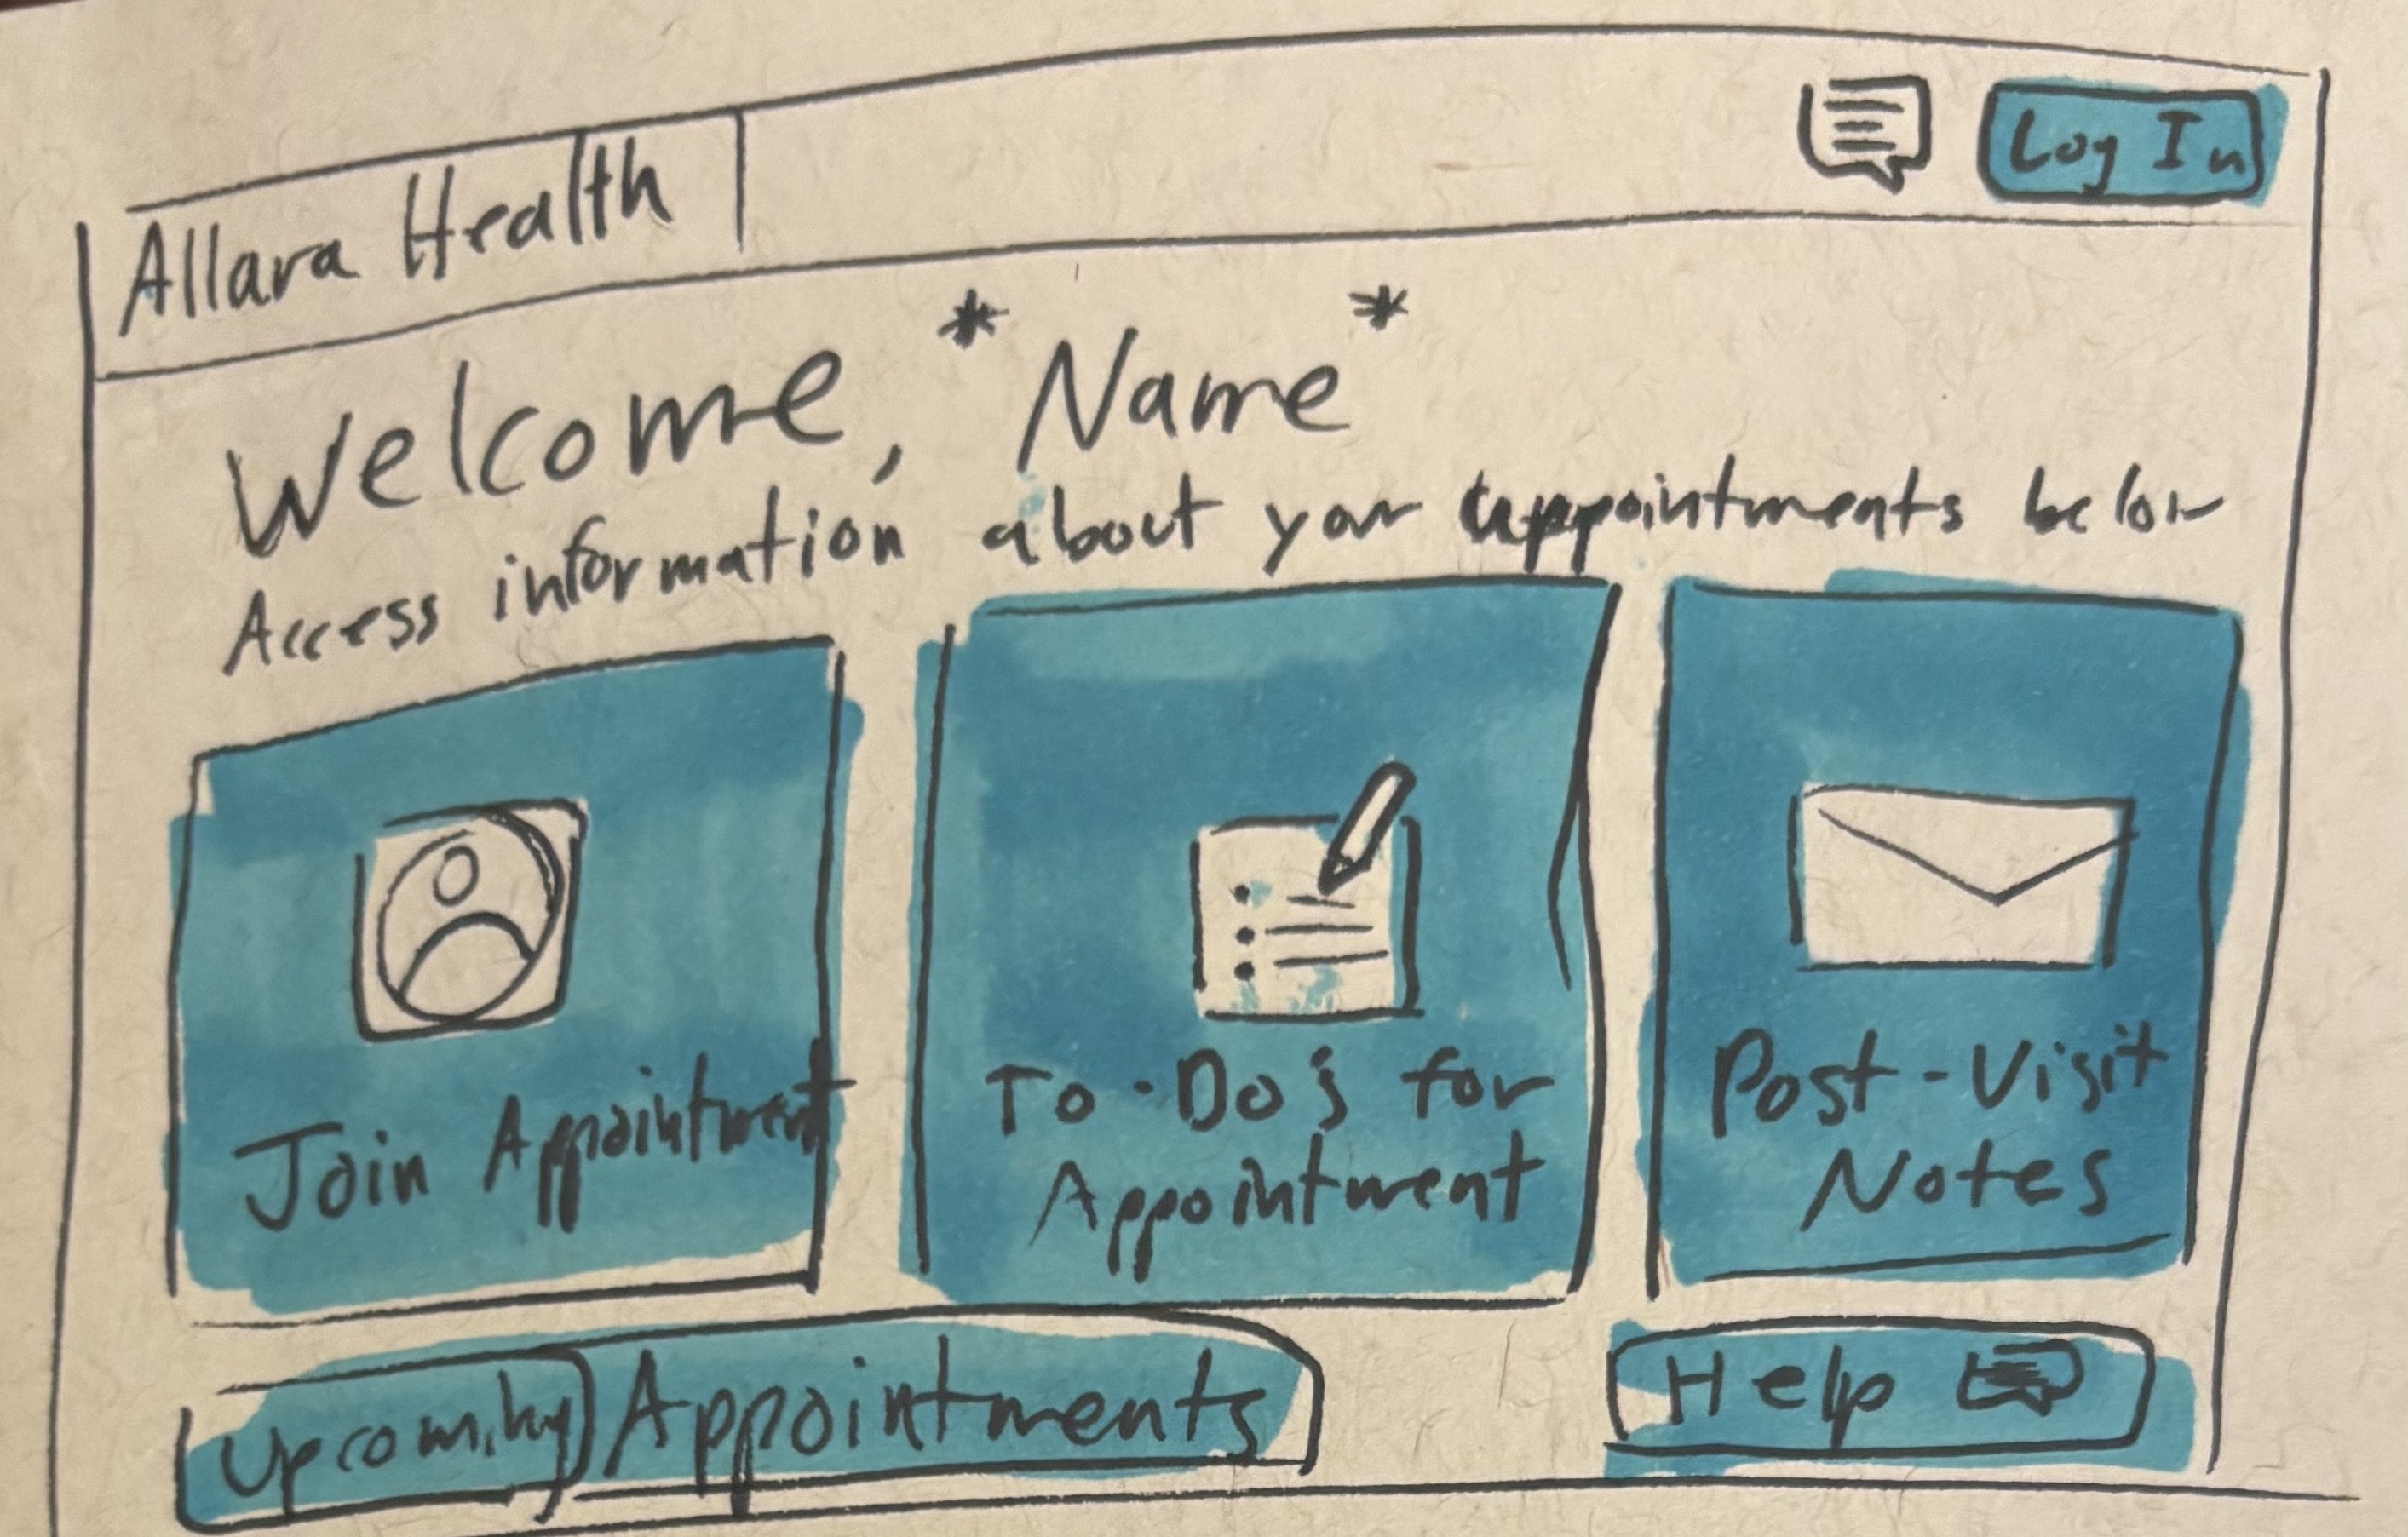 Allara Health
Log In
Welcome, *Name*
Access information about your appointments below
Join Appointment
To-Do's for
Appointment
Post-Visit
Notes
Upcoming Appointments
Help